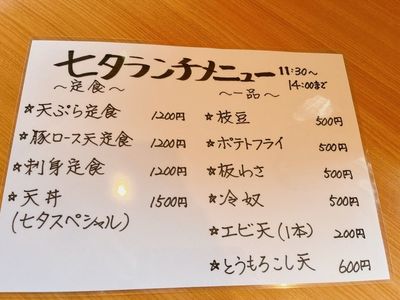 七夕ランチメニュー 11:30〜
14:00まで
〜定食〜
☆天ぷら定食 1200円
☆豚ロース天定食 1200円
☆刺身定食 1200円
☆天丼 1500円
(七夕スペシャル)
〜一品〜
☆枝豆 500円
☆ポテトフライ 500円
☆板わさ 500円
☆冷奴 500円
☆エビ天(1本) 200円
☆とうもろこし天 600円